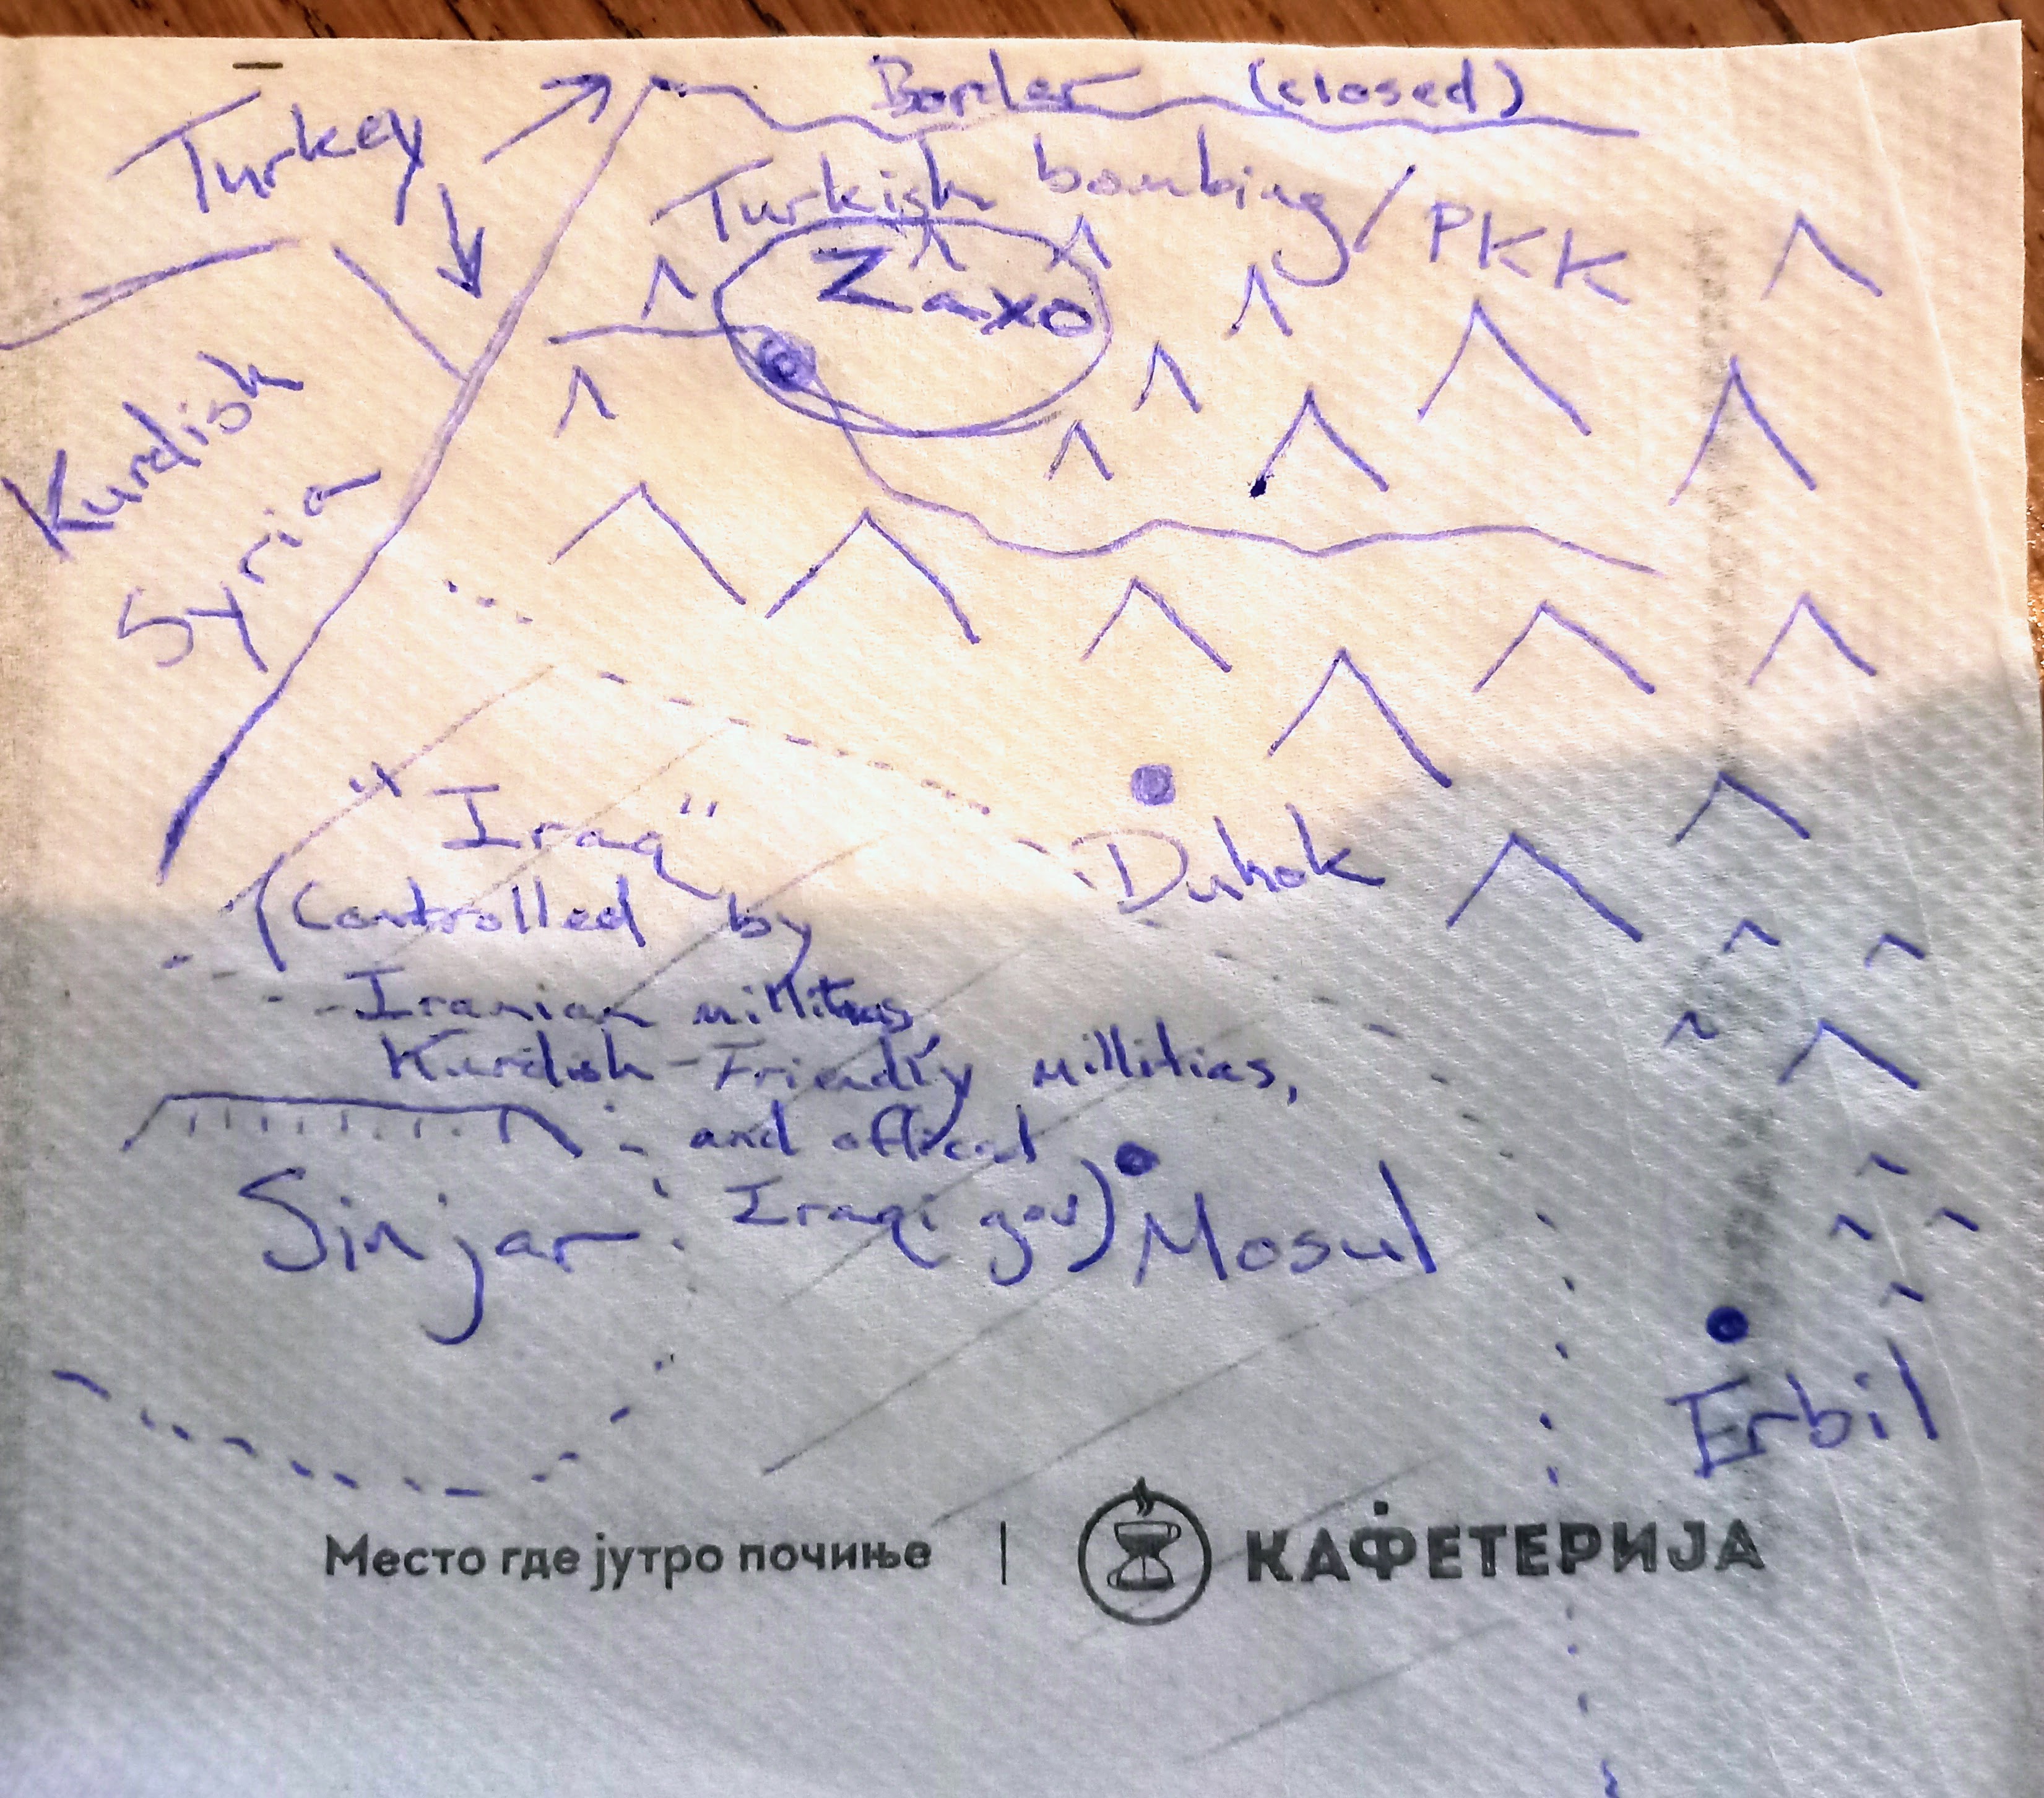 Border (closed)
Turkey
Turkish bombing/PKK
Zaxo
Kurdish
Syria
"Iraq"
(Controlled by
-Iranian millitias,
Kurdish-Friendly millitias,
and offical
Iraqi gov)
Duhok
Sinjar
Mosul
Erbil
Место где јутро почиње | КАФЕТЕРИЈА